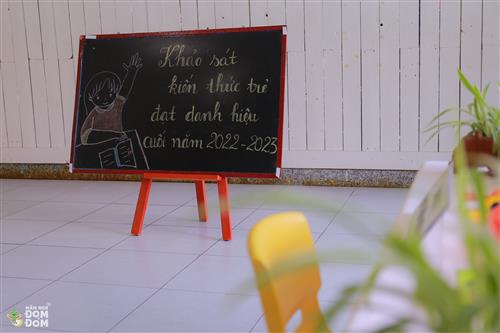 Khảo sát
kiến thức trẻ
đạt danh hiệu
cuối năm 2022-2023
MẦM NON
ĐOM
ĐOM